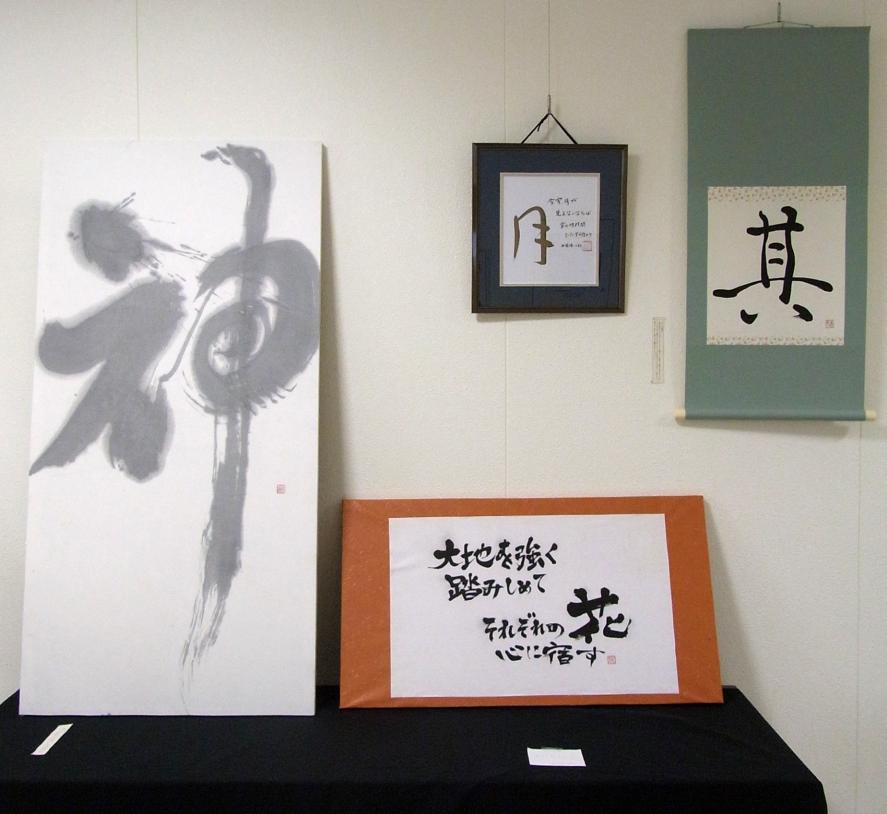 神
月
今宵月が
見えないならば
其
大地を強く
踏みしめて
それぞれの花
心に宿す